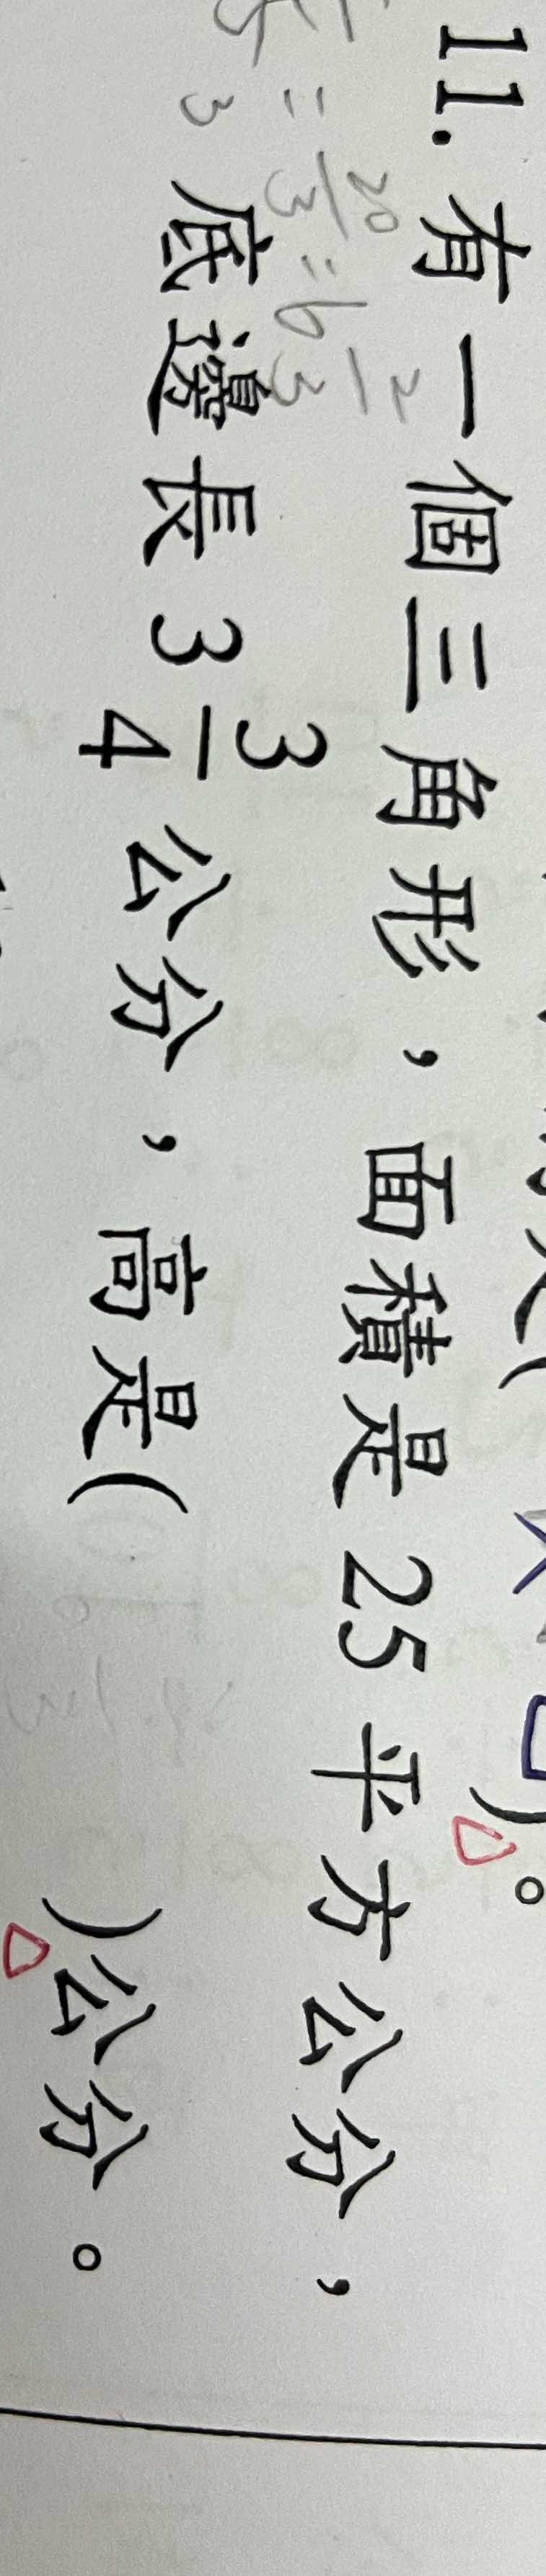 )。
11. 有一個三角形，面積是25平方公分，
= 20/3 = 6 2/3
底邊長3 3/4公分，高是(　　)公分。